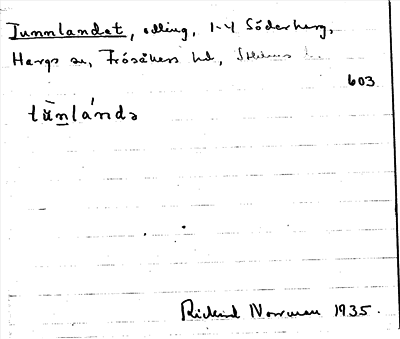 Tunnlandet, odling, 1-4 Söderberg,
Hargs sn, Frösåkers hd, Sthlms l.
603
tùn̲lándə
Rickard Norrman 1935.